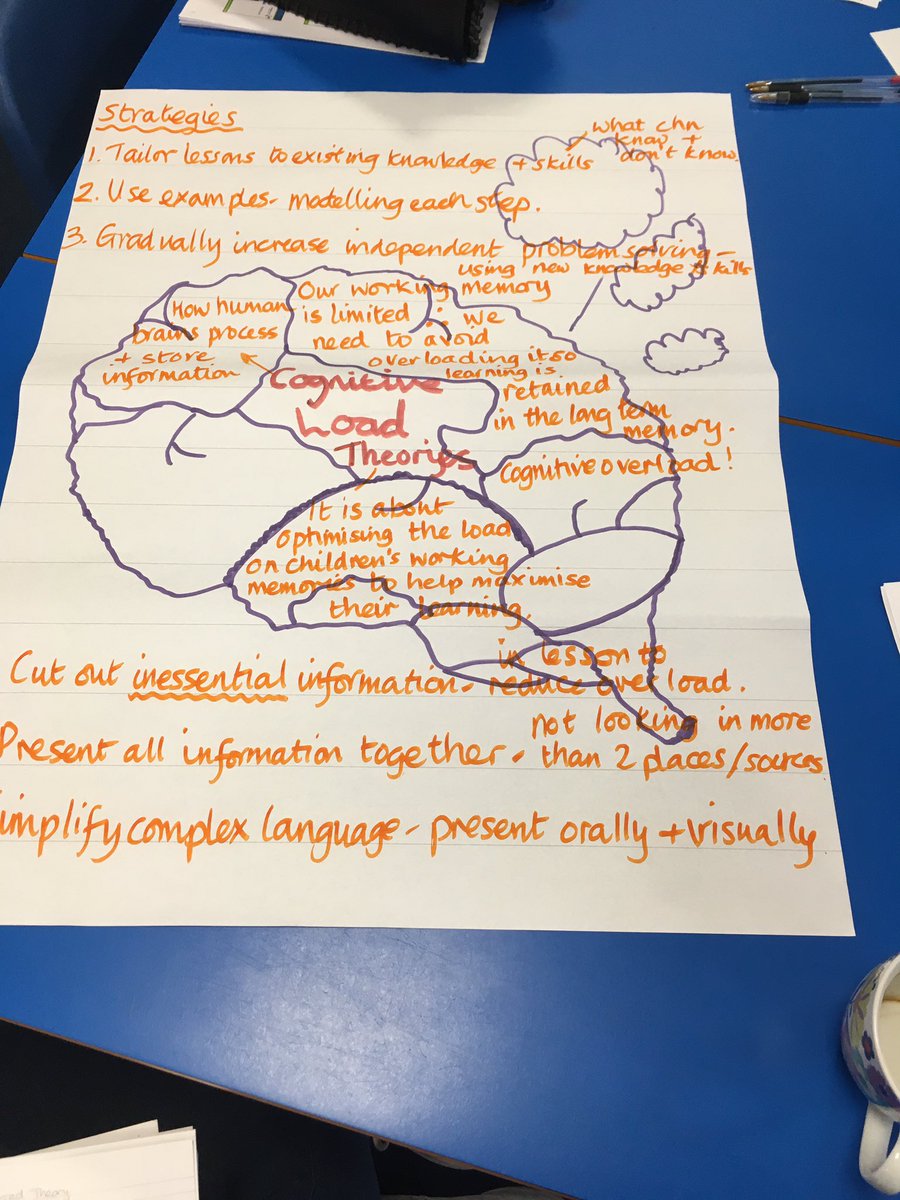 Strategies
what chn
know +
don't know.
1. Tailor lessons to existing knowledge + skills
2. Use examples - modelling each step.
3. Gradually increase independent problem solving -
using new knowledge & skills
How human
brains process
+ store
information
Our working memory
is limited ∴ we
need to avoid
overloading it so
learning is
retained
in the long term
memory.
Cognitive
Load
Theories
Cognitive overload!
It is about
optimising the load
on children's working
memories to help maximise
their learning.
Cut out inessential information - in lesson to
reduce overload.
Present all information together - not looking in more
than 2 places/sources
implify complex language - present orally + visually
Theory